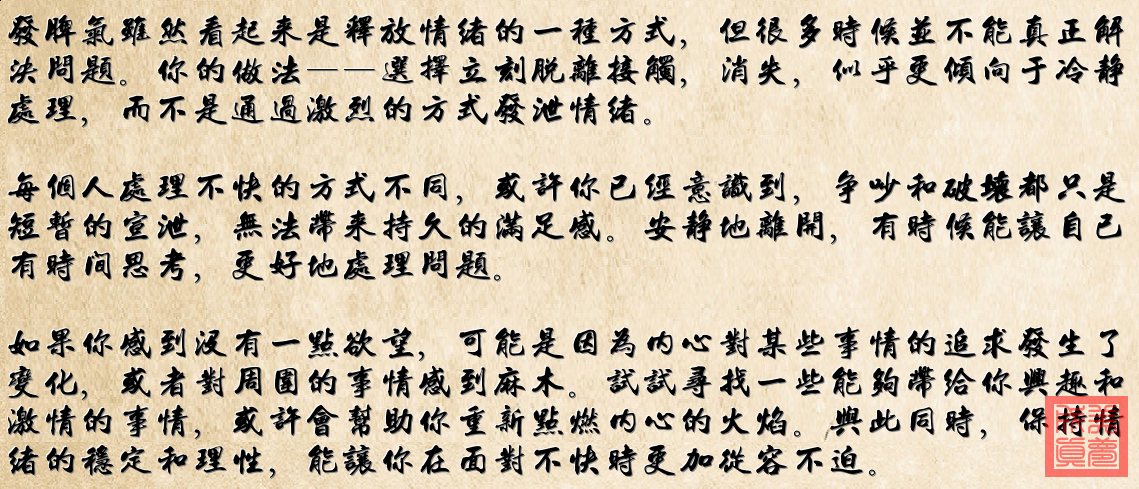 發脾氣雖然看起来是釋放情绪的一種方式，但很多時候並不能真正解
決問題。你的做法——選擇立刻脱離接觸，消失，似乎更傾向于冷静
處理，而不是通過激烈的方式發泄情绪。
每個人處理不快的方式不同，或許你已經意識到，争吵和破壞都只是
短暫的宣泄，無法帶来持久的滿足感。安静地離開，有時候能讓自己
有時间思考，更好地處理問題。
如果你感到没有一點欲望，可能是因為内心對某些事情的追求發生了
變化，或者對周圍的事情感到麻木。試試尋找一些能夠帶给你興趣和
激情的事情，或許會幫助你重新點燃内心的火焰。與此同時，保持情
绪的穩定和理性，能讓你在面對不快時更加從容不迫。